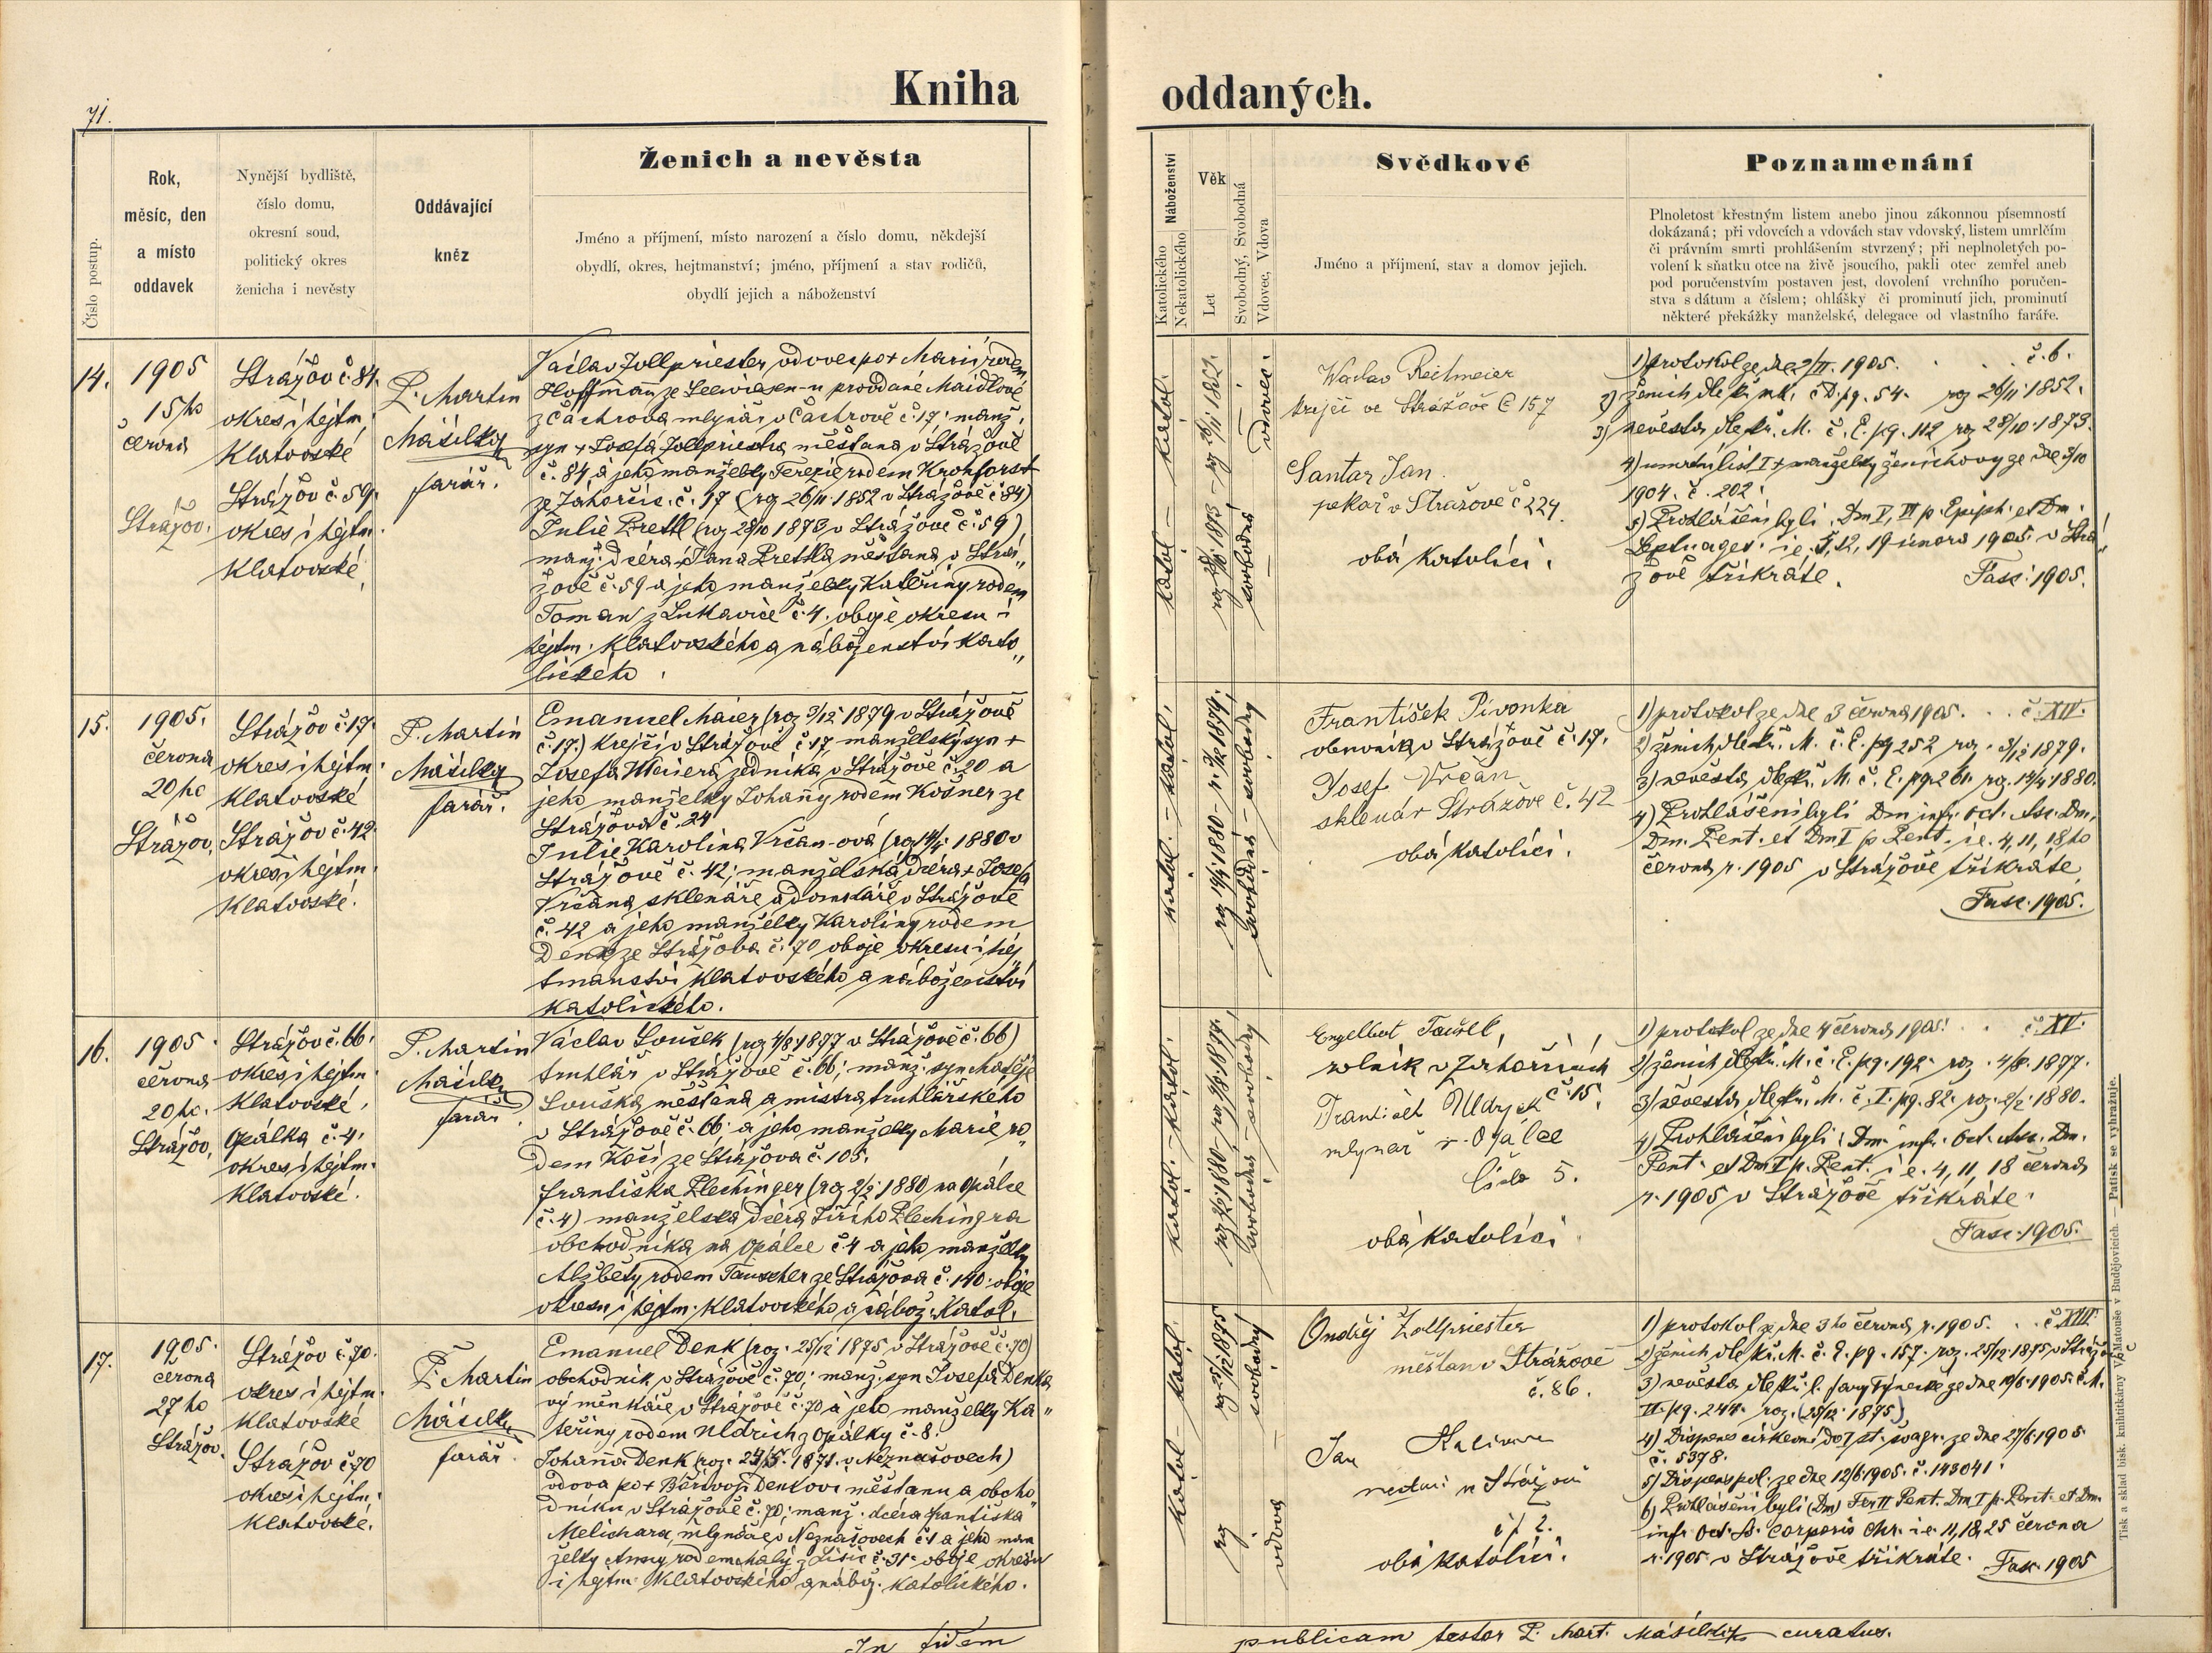 71.
Kniha
oddaných.
Číslo postup.
Rok,
měsíc, den
a místo
oddavek
Nynější bydliště,
číslo domu,
okresní soud,
politický okres
ženicha i nevěsty
Oddávající
kněz
Ženich a nevěsta
Jméno a příjmení, místo narození a číslo domu, někdejší
obydlí, okres, hejtmanství; jméno, příjmení a stav rodičů,
obydlí jejich a náboženství
Náboženství
Katolického
Nekatolického
Věk
Let
Svobodný, Svobodná
Vdovec, Vdova
Svědkové
Jméno a příjmení, stav a domov jejich.
Poznamenání
Plnoletost křestným listem anebo jinou zákonnou písemností
dokázaná; při vdovcích a vdovách stav vdovský, listem umrlčím
či právním smrti prohlášením stvrzený; při neplnoletých po-
volení k sňatku otce na živě jsoucího, pakli otec zemřel aneb
pod poručenstvím postaven jest, dovolení vrchního poručen-
stva s dátum a číslem; ohlášky či prominutí jich, prominutí
některé překážky manželské, delegace od vlastního faráře.
14.
1905
15ho
června
Strážov.
Strážov č. 84.
okres i hejtm.
Klatovské
Strážov č. 59.
okres i hejtm.
Klatovské
P. Martin
Másilko
farář.
Václav Zollpriester, vdovec po + Marii rodem
Hoffmann ze Seewiesen-u provdané Maidlové
z Čachrova mlynář v Čachrově č. 17; manž.
syn + Josefa Zollpriestra měšťana v Strážově
č. 84 a jeho manželky Terezie rodem Krohforst
ze Zahorčic č. 17 (roz 26/11 1852 v Strážově č 84)
Julie Prettl (roz 28/10 1873 v Strážově č. 59)
manž. dcéra + Jana Prettla měšťana v Strá„
žově č. 59 a jeho manželky Kateřiny rodem
Toman z Lukavice č. 4. oboje okresu i
hejtm. Klatovského a náboženství kato„
lického.
katol. – katol.
roz 28/10 1873 – roz 26/11 1852.
svobodná – vdovec.
Waclav Reitmeier
krejčí ve Strážově č 157
Santar Jan
pekař v Stražově č 224.
obá katolíci.
1) protokol ze dne 2/II. 1905. . . č. 6.
2) ženich dle kř. mt. č D. pg. 54. roz 26/11 1852.
3) nevěsta dle kř. M. č. E. pg. 112 roz 28/10 1873.
4) umrtní list I + manželky ženichovy ze dne 3/10
1904. č. 202.
5) Prohlášeni byli. Dm V, VI p. Epiph. et Dm.
Septuages. i e. 5, 12, 19 února 1905 v Strá„
žově třikráte. Fasc. 1905.
15.
1905.
června
20ho
Strážov,
Strážov č. 17.
okres i hejtm.
Klatovské
Strážov č. 42.
okres i hejtm.
Klatovské.
P. Martin
Másilko
farář.
Emanuel Maier (roz 3/12 1879 v Strážově
č. 17.) krejčí v Strážově č. 17, manželský syn +
Josefa Maiera zedníka v Strážově č. 20 a
jeho manželky Johanny rodem Košner ze
Strážova č. 24
Julie Karolina Vrčan-ová (roz 14/4 1880 v
Strážově č. 42; manželská dcéra + Josefa
Vrčana sklenáře a domkáře v Strážově
č. 42 a jeho manželky Karoliny rodem
Denk ze Strážova č. 70 oboje okresu i hej„
tmanství Klatovského a náboženství
katolického.
katol. – katol.
roz 14/4 1880 – r. 3/12 1879.
svobodná – svobodný
František Pivonka
obuvník v Strážově č. 17.
Josef Vrčan
sklenár Strážove č. 42
obá katolíci.
1) protokol ze dne 3 června 1905. . . č. XIV.
2) ženich dle kř. M. č. E. pg 252 roz. 3/12 1879.
3) nevěsta dle kř. M. č. E. pg. 261. roz. 14/4 1880.
4) Prohlášeni byli Dm infr. oct. Asc. Dm,
Dm. Pent. et Dm I p Pent. i e. 4, 11, 18ho
června r. 1905 v Strážově třikráte
Fasc. 1905.
16.
1905.
června
20ho.
Strážov,
Strážov č. 66.
okres i hejtm.
Klatovské,
Opálka č. 4.
okres i hejtm.
Klatovské.
P. Martin
Másilko
farář.
Václav Soušek (roz 4/8 1877 v Strážově č. 66)
truhlář v Strážově č. 66; manž. syn Matěje
Souška měšťana a mistra truhlářského
v Strážově č. 66. a jeho manželky Marie ro„
dem Kočí ze Strážova č. 105.
Františka Plechinger (roz 2/2 1880 na Opálce
č. 4) manželská dcéra Jiřího Plechingra
obchodníka na Opálce č. 4 a jeho manželky
Alžběty rodem Tauscher ze Strážova č. 140. oboje
okresu i hejtm. Klatovského a nábož. Katol.
katol. – katol.
roz 2/2 1880 – roz 4/8 1877.
svobodná – svobodný
Engelbert Taušel,
rolník v Zahorčicích
č. 15.
František Uldrych
mlynář v Opálce
číslo 5.
obá katolíci
1) protokol ze dne 4 června 1905. . . č. XV.
2) ženich dle kř. M. č. E. pg. 192. roz. 4/8. 1877.
3) nevěsta dle kř. M. č. I. pg. 82. roz. 2/2. 1880.
4) Prohlášeni byli: Dm. infr. Oct. Asc. Dm.
Pent. et Dm I p. Pent. i e. 4, 11, 18 června
r. 1905 v Strážově třikráte.
Fasc. 1905.
17.
1905.
června
27ho
Strážov.
Strážov č. 70.
okres i hejtm.
Klatovské
Strážov č. 70
okres i hejtm.
Klatovské.
P. Martin
Másilko
farář.
Emanuel Denk (roz. 25/12 1875 v Strážově č. 70)
obchodník v Strážově č. 70; manž. syn Josefa Denka
výměnkáře v Strážově č. 70 a jeho manželky Ka„
teřiny rodem Uldrich z Opálky č. 8.
Johanna Denk (roz. 1871. v Neznašovech)
vdova po + Bořivoji Denkovi měšťanu a obcho„
dníku v Strážově č. 70; manž. dcéra Františka
Melichara, mlynáře v Neznašovech č. 1 a jeho man
želky Anny rodem Malý z Lišic č. 31. oboje okresu
i hejtm. Klatovského a nábož. katolického.
katol. – katol.
roz 25/12 1875
vdova – svobodný
Ondřej Zollpriester
měšťan v Strážově
č. 86.
Jan
č. 2.
obá katolíci.
1) protokol ze dne 3ho června r. 1905. . . č. XIII.
2) ženich dle kř. M. č. E. pg. 157. roz. 25/12 1875 v Strážově
3) nevěsta dle kř. l. fary Týnecké ze dne 10/6 1905. č. M.
II. pg. 244. roz.
4) Dispens církevní do I st. švagr. ze dne 27/6 1905
č. 5378.
5) Dispens pol. ze dne 12/6 1905. č. 143041.
6) Prohlášeni byli (Dm) Fer II Pent. Dm I p. Pent. et Dm.
infr. Oct. S. Corporis Chr. i e. 11, 18, 25 června
r. 1905 v Strážově třikráte. Fasc. 1905
In fidem
publicam testor P. Mart. Másilko curatus.
Tisk a sklad bisk. knihtiskárny V. Matouše v Budějovicích. — Patisk se vyhražuje.